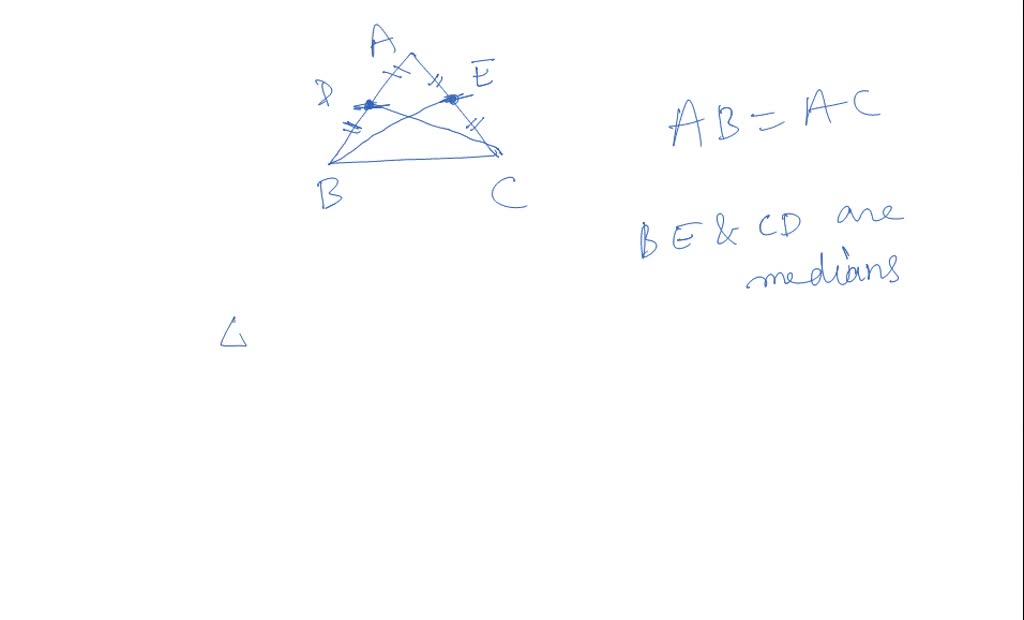 A
E
D
B
C
AB = AC
BE & CD are
medians
Δ